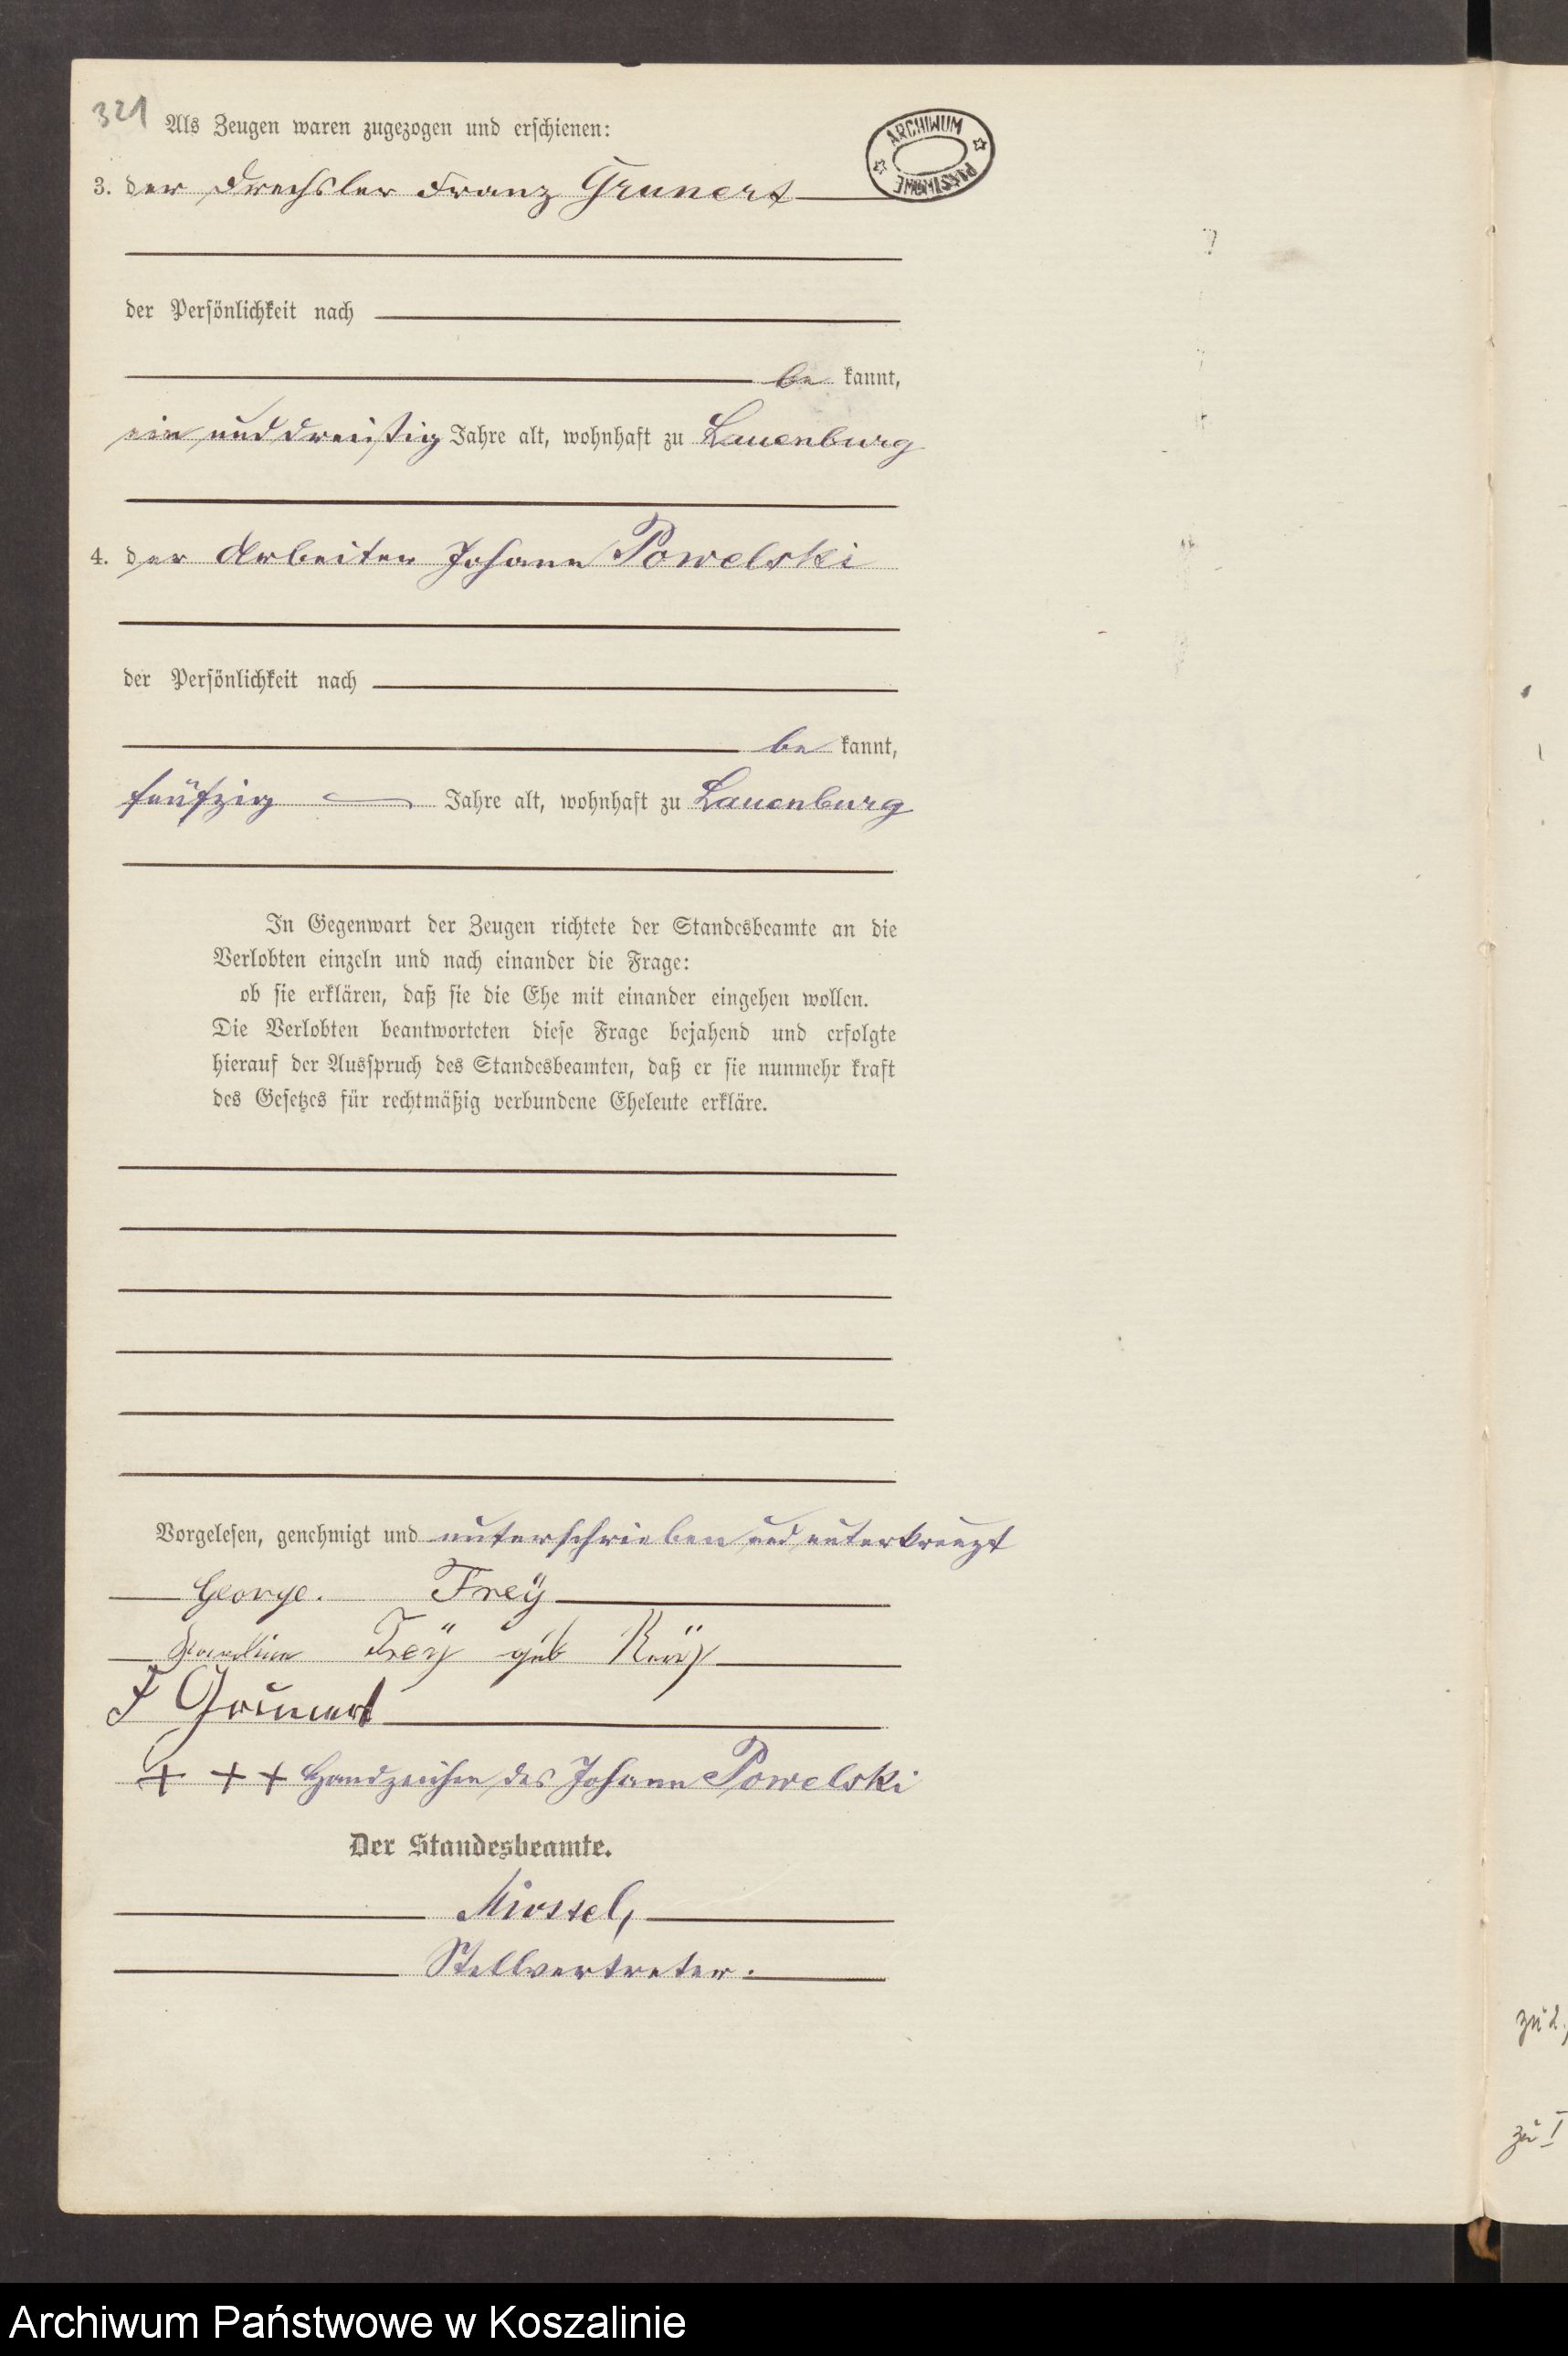 321 Als Zeugen waren zugezogen und erschienen:
ARCHIWUM PAŃSTWOWE
3. der Drechsler Franz Grunert
der Persönlichkeit nach
be kannt,
ein und dreißig Jahre alt, wohnhaft zu Lauenburg
4. der Arbeiter Johann Powelski
der Persönlichkeit nach
be kannt,
fünfzig Jahre alt, wohnhaft zu Lauenburg
In Gegenwart der Zeugen richtete der Standesbeamte an die
Verlobten einzeln und nach einander die Frage:
ob sie erklären, daß sie die Ehe mit einander eingehen wollen.
Die Verlobten beantworteten diese Frage bejahend und erfolgte
hierauf der Ausspruch des Standesbeamten, daß er sie nunmehr kraft
des Gesetzes für rechtmäßig verbundene Eheleute erkläre.
Vorgelesen, genehmigt und unterschrieben und unterkreuzt
George. Freÿ
Freÿ geb
F Grunert
+ + + Handzeichen des Johann Powelski
Der Standesbeamte.
Stellvertreter.
zu 2,
zu I
Archiwum Państwowe w Koszalinie